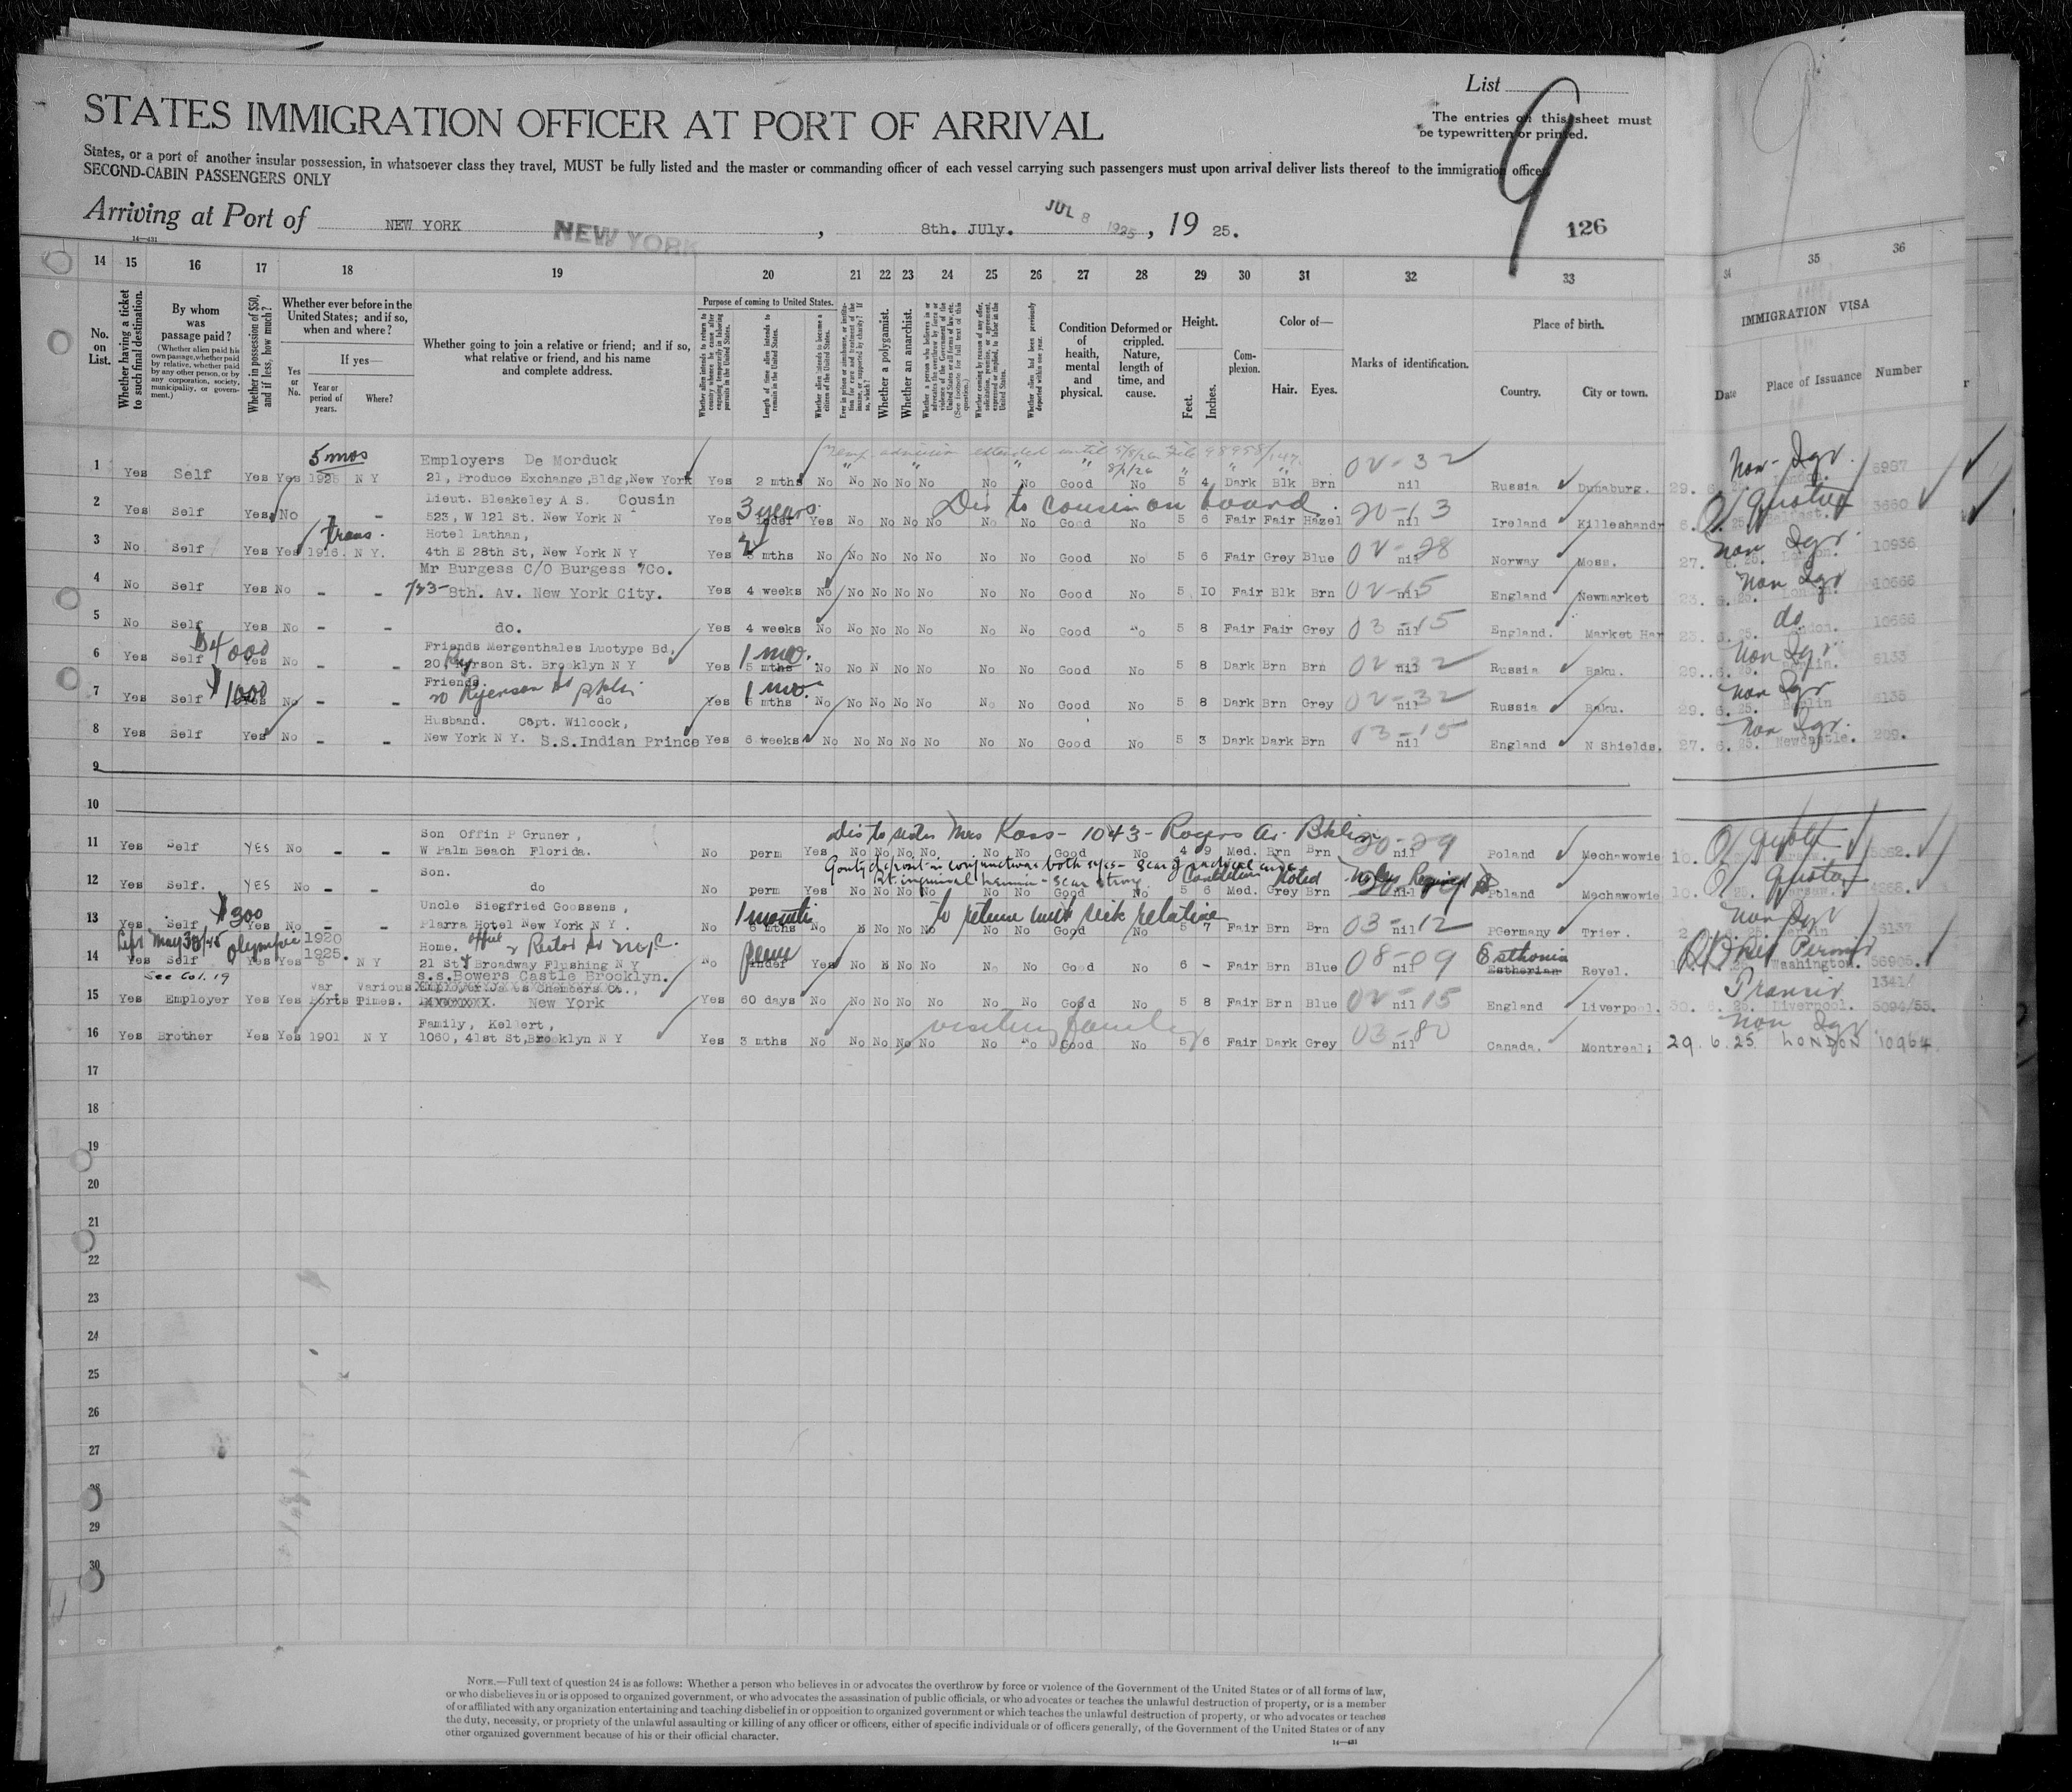 List
STATES IMMIGRATION OFFICER AT PORT OF ARRIVAL
The entries on this sheet must
be typewritten or printed.
9
States, or a port of another insular possession, in whatsoever class they travel, MUST be fully listed and the master or commanding officer of each vessel carrying such passengers must upon arrival deliver lists thereof to the immigration officer.
SECOND-CABIN PASSENGERS ONLY
Arriving at Port of NEW YORK NEW YORK, 8th. JULY. JUL 8 1925, 19 25.
126
14—431
14 15 16 17 18 19 20 21 22 23 24 25 26 27 28 29 30 31 32 33 34 35 36
No. on List.
Whether having a ticket to such final destination.
By whom was passage paid?
(Whether alien paid his own passage, whether paid by relative, whether paid by any other person, or by any corporation, society, municipality, or government.)
Whether in possession of $50, and if less, how much?
Whether ever before in the United States; and if so, when and where?
Yes or No.
If yes—
Year or period of years.
Where?
Whether going to join a relative or friend; and if so, what relative or friend, and his name and complete address.
Purpose of coming to United States.
Length of time alien intends to remain in the United States.
Whether alien intends to become a citizen of the United States.
Whether a polygamist.
Whether an anarchist.
Condition of health, mental and physical.
Deformed or crippled. Nature, length of time, and cause.
Height.
Feet. Inches.
Complexion.
Color of—
Hair. Eyes.
Marks of identification.
Place of birth.
Country. City or town.
IMMIGRATION VISA
Date Place of Issuance Number
5 mos
1 Yes Self Yes Yes 1925 N Y Employers De Morduck
21, Produce Exchange,Bldg,New York Yes 2 mths No No No No No No No Good No 5 4 Dark Blk Brn nil 02-32 Russia Dunaburg. 29. Non-Igr. 6967
2 Yes Self Yes No - - Lieut. Bleakeley A S. Cousin
523, W 121 St. New York N Yes 3 years Yes No No No No No No Good No 5 6 Fair Fair Hazel nil 20-13 Ireland Killeshandr Quota 3660
Dis to cousin on board
3 No Self Yes Yes trans. 1916. N Y. Hotel Lathan,
4th E 28th St, New York N Y Yes mths No No No No No No No Good No 5 6 Fair Grey Blue nil 02-28 Norway Moss. 27. 6. 25. London. Non Igr. 10936
4 No Self Yes No - - Mr Burgess C/O Burgess &Co.
723- 8th. Av. New York City. Yes 4 weeks No No No No No No No Good No 5 10 Fair Blk Brn nil 02-15 England Newmarket 23. 6. 25. London. Non Igr 10666
5 No Self Yes No - - do. Yes 4 weeks No No No No No No No Good No 5 8 Fair Fair Grey nil 03-15 England. Market Har 23. 6. 25. London. do 10666
6 Yes Self $4000 Yes No - - Friends Mergenthales Luotype Bd,
20 Ryerson St. Brooklyn N Y Yes 1 mo. 5 mths No No N No No No No Good No 5 8 Dark Brn Brn nil 02-32 Russia Baku. 29. 6. 25. Berlin. Non Igr 6133
7 Yes Self $1000 Yes No - - Friends.
20 Ryerson St Bkln do Yes 1 mo. 5 mths No No No No No No No Good No 5 8 Dark Brn Grey nil 02-32 Russia Baku. 29. 6. 25. Berlin Non Igr 6135
8 Yes Self Yes No - - Husband. Capt. Wilcock,
New York N Y. S.S.Indian Prince Yes 6 weeks No No No No No No No Good No 5 3 Dark Dark Brn nil 03-15 England N Shields. 27. 6. 25. Newcastle. Non Igr. 299.
9
10
Dis to sister Mrs Kass- 1043- Rogers Av. Bklin
11 Yes Self YES No - - Son Offin P Gruner,
W Palm Beach Florida. No perm Yes No No No No No No Good No 4 9 Med. Brn Brn nil 20-29 Poland Mechawowie 10. Quota 5052.
12 Yes Self. YES No - - Son.
do No perm Yes No No No No No No Good No 5 6 Med. Grey Brn nil Poland Mechawowie 10. 25. Warsaw. Quota 4268.
Condition Noted
13 Yes Self $300 Yes No - - Uncle Siegfried Goossens,
Plarra Hotel New York N Y. No 1 month 6 mths No No No No No No Good No 5 7 Fair Brn Brn nil 03-12 PGermany Trier. 2 6. 25. Berlin Non Igr 6137
Left May 30/25 Olympic
14 Yes Self Yes Yes 1920 1925. N Y Home. office
21 St & Broadway Flushing N Y No perm Yes No No No No No No Good No 6 - Fair Brn Blue nil 08-09 Esthonia Estherian Revel. Washington. Permit 56905.
See Col. 19
s.s.Bowers Castle Brooklyn.
15 Yes Employer Yes Yes Var Ports Various Times. New York Yes 60 days No No No No No No No Good No 5 8 Fair Brn Blue nil 02-15 England Liverpool. 30. 6. 25. Liverpool. Transit 1341/ 5094/55.
16 Yes Brother Yes Yes 1901 N Y Family, Kellert,
1060, 41st St,Brooklyn N Y Yes 3 mths No No No No No No No Good No 5 6 Fair Dark Grey nil 03-80 Canada. Montreal; 29. 6. 25 LONDON Non Igr. 10964
visiting family
17
18
19
20
21
22
23
24
25
26
27
28
29
30
NOTE.—Full text of question 24 is as follows: Whether a person who believes in or advocates the overthrow by force or violence of the Government of the United States or of all forms of law,
or who disbelieves in or is opposed to organized government, or who advocates the assassination of public officials, or who advocates or teaches the unlawful destruction of property, or is a member
of or affiliated with any organization entertaining and teaching disbelief in or opposition to organized government or which teaches the unlawful destruction of property, or who advocates or teaches
the duty, necessity, or propriety of the unlawful assaulting or killing of any officer or officers, either of specific individuals or of officers generally, of the Government of the United States or of any
other organized government because of his or their official character.
14—431